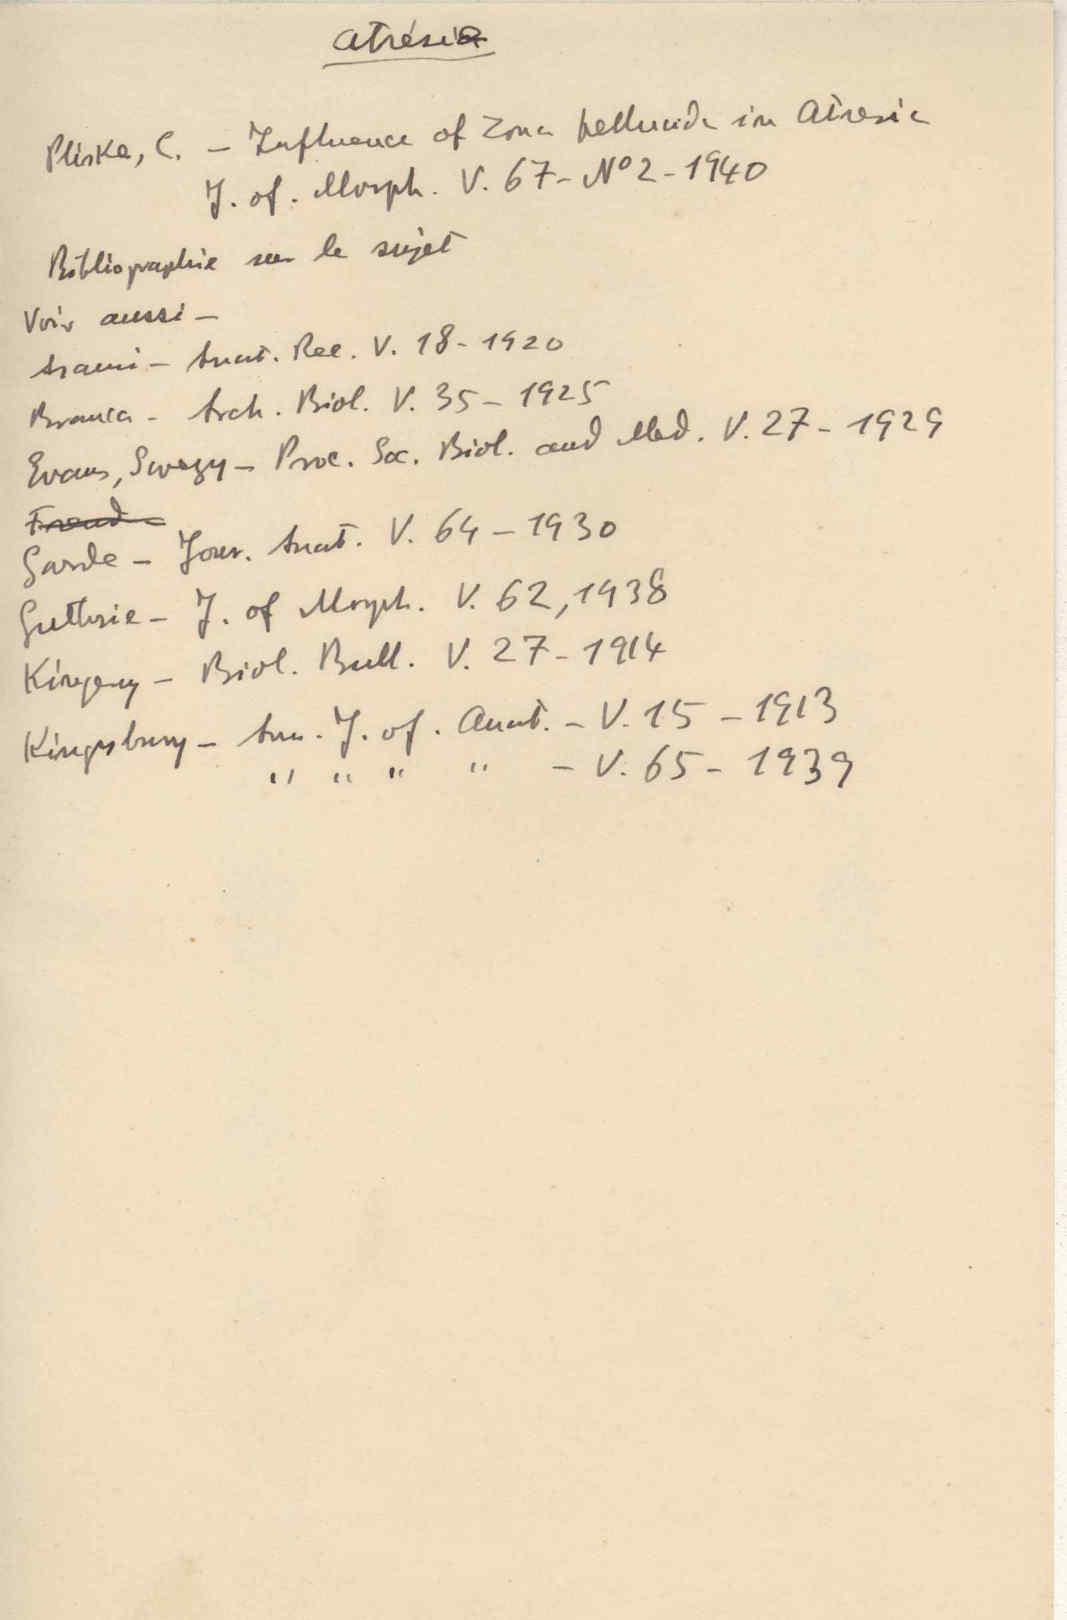 Atrésie
Pliske, C. – Influence of Zona pellucida in Atresia
J. of. Morph. V. 67 – Nº 2 – 1940
Bibliographie sur le sujet
Voir aussi –
Asami – Anat. Rec. V. 18 – 1920
Branca – Arch. Biol. V. 35 – 1925
Evans, Swezy – Proc. Soc. Biol. and Med. V. 27 – 1929
Freud –
Garde – Jour. Anat. V. 64 – 1930
Guthrie – J. of Morph. V. 62, 1938
Kingery – Biol. Bull. V. 27 – 1914
Kingsbury – Am. J. of. Anat. – V. 15 – 1913
" " " " – V. 65 – 1939